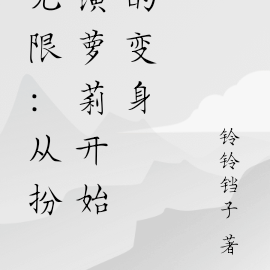 无限：从扮
演萝莉开始
的变身
铃铃铛子 著